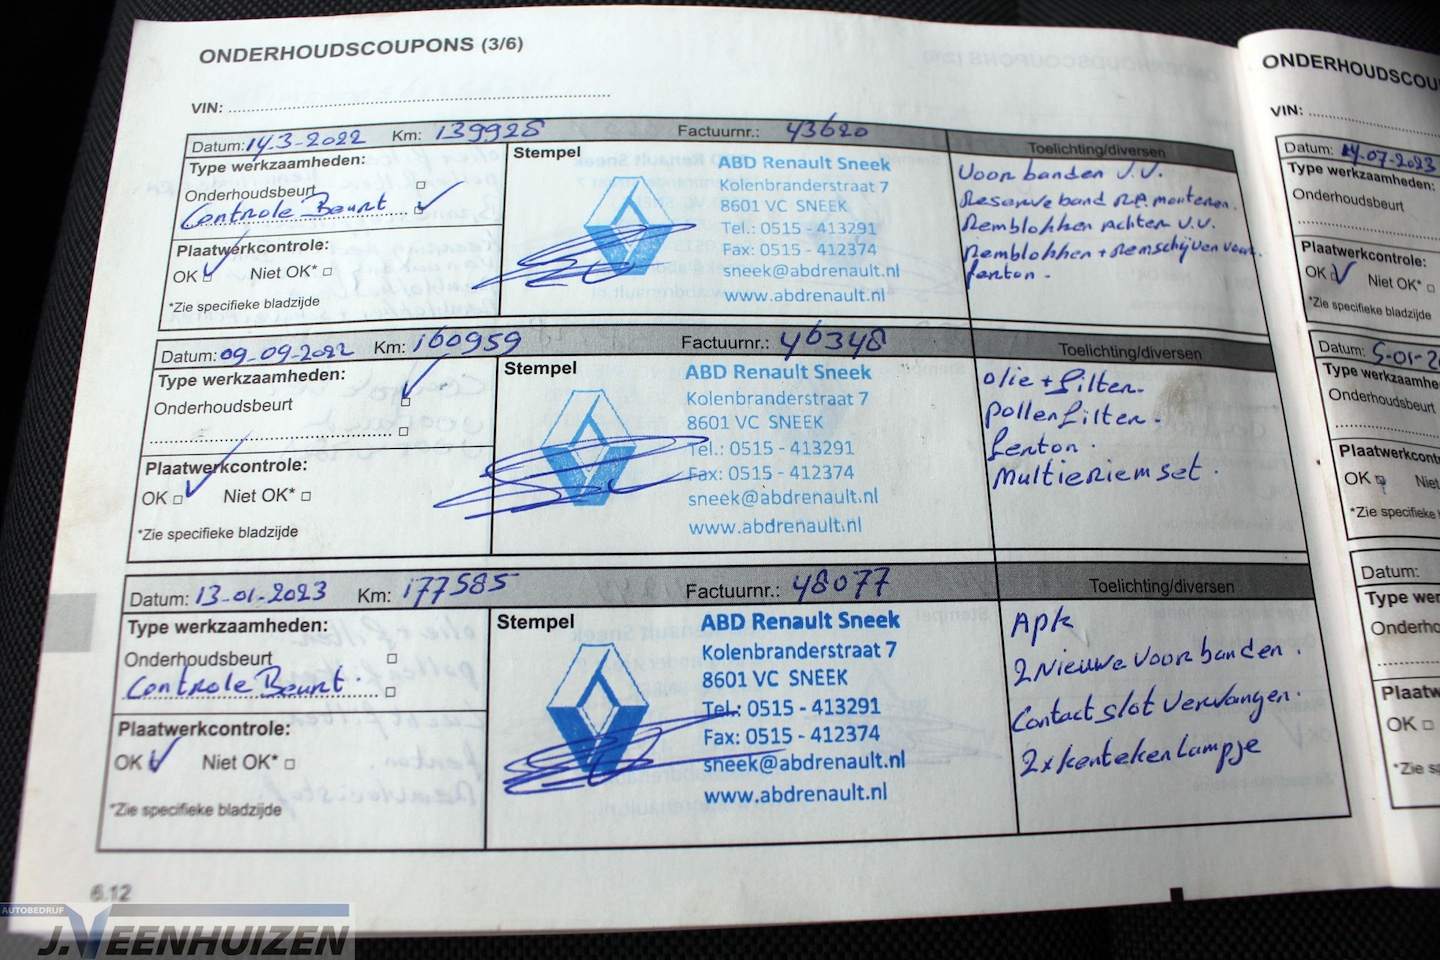 ONDERHOUDSCOUPONS (3/6)
VIN:
Datum: 14.3-2022 Km: 139928 Factuurnr.: 43620 Toelichting/diversen
Type werkzaamheden:
Onderhoudsbeurt
Controle Beurt
Plaatwerkcontrole:
OK Niet OK*
*Zie specifieke bladzijde
Stempel
ABD Renault Sneek
Kolenbranderstraat 7
8601 VC SNEEK
Tel.: 0515 - 413291
Fax: 0515 - 412374
sneek@abdrenault.nl
www.abdrenault.nl
Voorbanden V.V.
Reserveband R.A monteren.
Remblokken Achter V.V.
Remblokken + Remschijven voor.
fenton.
Datum: 09-09-2022 Km: 160959 Factuurnr.: 46348 Toelichting/diversen
Type werkzaamheden:
Onderhoudsbeurt
Plaatwerkcontrole:
OK Niet OK*
*Zie specifieke bladzijde
Stempel
ABD Renault Sneek
Kolenbranderstraat 7
8601 VC SNEEK
Tel.: 0515 - 413291
Fax: 0515 - 412374
sneek@abdrenault.nl
www.abdrenault.nl
olie + filter.
pollenfilter.
fenton.
Multieriem set.
Datum: 13-01-2023 Km: 177585 Factuurnr.: 48077 Toelichting/diversen
Type werkzaamheden:
Onderhoudsbeurt
Controle Beurt.
Plaatwerkcontrole:
OK Niet OK*
*Zie specifieke bladzijde
Stempel
ABD Renault Sneek
Kolenbranderstraat 7
8601 VC SNEEK
Tel.: 0515 - 413291
Fax: 0515 - 412374
sneek@abdrenault.nl
www.abdrenault.nl
Apk
2 Nieuwe voorbanden.
Contactslot vervangen.
2x kentekenlampje
6.12
ONDERHOUDSCOU
VIN:
Datum: 14.07-2023
Type werkzaamheden:
Onderhoudsbeurt
Plaatwerkcontrole:
OK Niet OK*
*Zie specifieke bladzijde
Datum: 5-01-20
Type werkzaamhe
Onderhoudsbeurt
Plaatwerkcont
OK Niet
*Zie specifieke b
Datum:
Type wer
Onderho
Plaatw
OK
*Zie sp
AUTOBEDRIJF
J.VEENHUIZEN